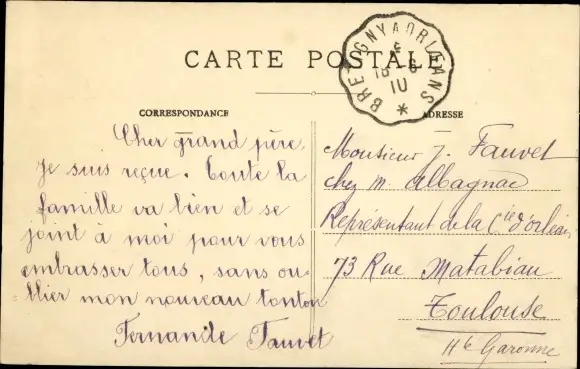 CARTE POSTALE
BRETIGNY A ORLEANS
18 6
10
*
CORRESPONDANCE
ADRESSE
Cher grand père,
Je suis reçue. Toute la
famille va bien et se
joint à moi pour vous
embrasser tous, sans ou-
blier mon nouveau tonton
Fernande Fauvet
Monsieur J. Fauvet
chez M. Albagnac
Représentant de la Cie d'orléans
73 Rue Matabiau
Toulouse
Hte Garonne